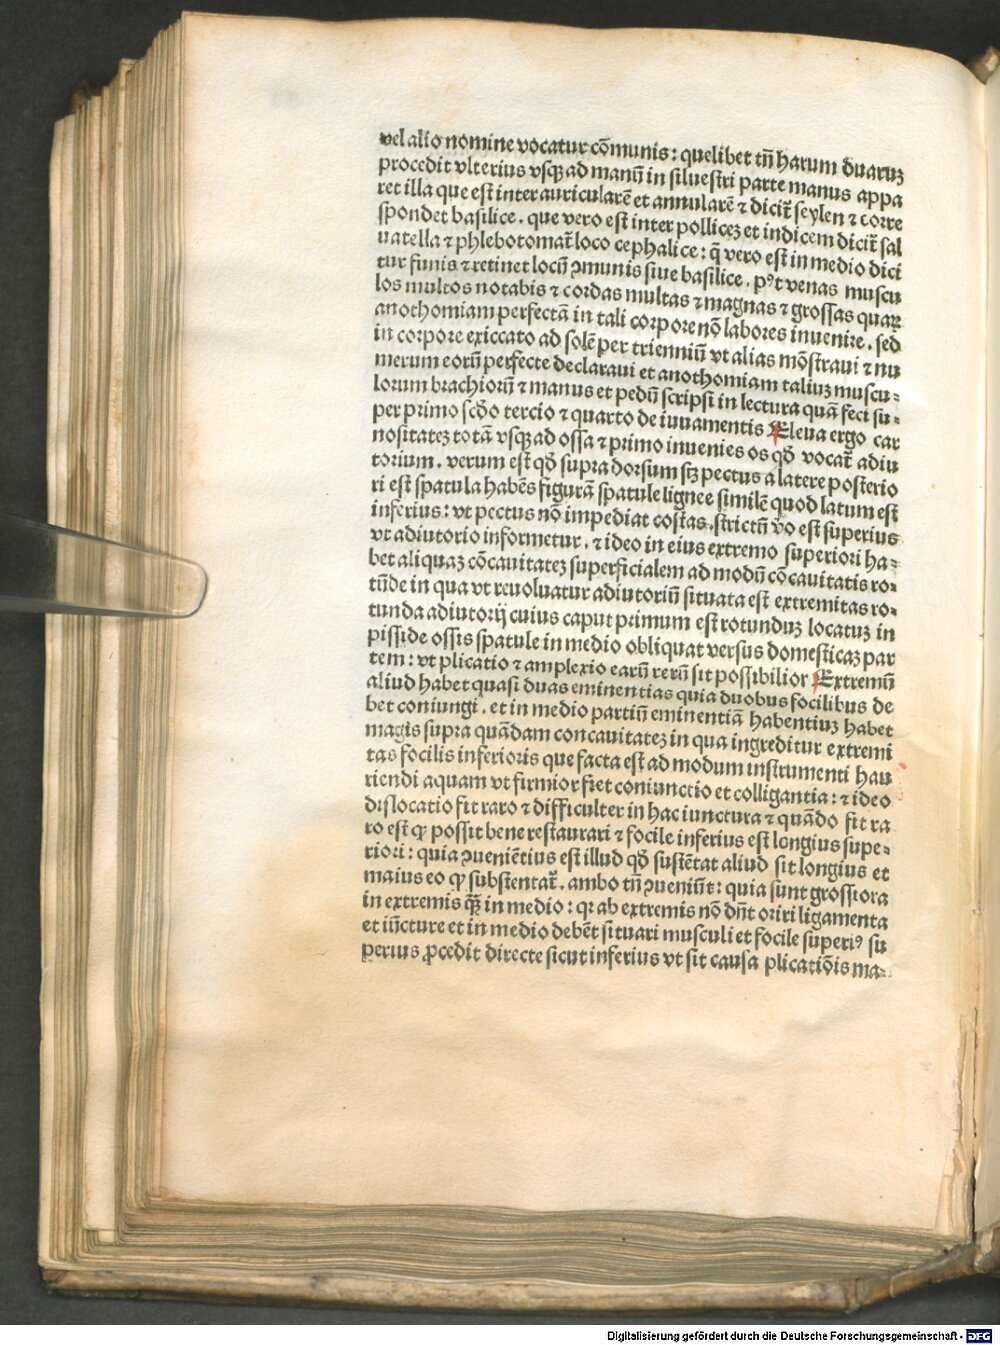 vel alio nomine vocatur cōmunis: quelibet tñ harum duaruz
procedit vlterius vsqꝫ ad manū in siluestri parte manus appa
ret illa que est inter auricularē et annularē ⁊ dicit̄ seylen ⁊ corre
spondet basilice. que vero est inter pollicez et indicem dicit̄ sal
uatella ⁊ phlebotomat̄ loco cephalice: q̄ vero est in medio dici
tur funis ⁊ retinet locū ꝯmunis siue basilice. pꝰt venas muscu
los multos notabis ⁊ cordas multas ⁊ magnas ⁊ grossas quaꝝ
anothomiam perfectā in tali corpore nō labores inuenire. sed
in corpore exiccato ad solē per trienniū vt alias mōstraui ⁊ nu
merum eorū perfecte declaraui et anothomiam taliuz muscu-
lorum brachiorū ⁊ manus et pedū scripsi in lectura quā feci su-
per primo scḋo tercio ⁊ quarto de iuuamentis Eleua ergo car
nositatez totā vsqꝫ ad ossa ⁊ primo inuenies os qḋ vocat̄ adiu
torium. verum est qḋ supra dorsum sꝫ pectus a latere posterio
ri est spatula habēs figurā spatule lignee similē quod latum est
inferius: vt pectus nō impediat costas. strictū v̊o est superius
vt adiutorio informetur. ⁊ ideo in eius extremo superiori ha-
bet aliquaz cōcauitatez superficialem ad modū cōcauitatis ro-
tūde in qua vt reuoluatur adiutoriū situata est extremitas ro-
tunda adiutorij cuius caput primum est rotunduz locatuz in
pisside ossis spatule in medio obliquat versus domesticaz par
tem: vt plicatio ⁊ amplexio earū rerū sit possibilior Extremū
aliud habet quasi duas eminentias quia duobus focilibus de
bet coniungi. et in medio partiū eminentiā habentiuz habet
magis supra quādam concauitatez in qua ingreditur extremi
tas focilis inferioris que facta est ad modum instrumenti hau
riendi aquam vt firmior fiet coniunctio et colligantia: ⁊ ideo
dislocatio fit raro ⁊ difficulter in hac iunctura ⁊ quādo fit ra
ro est ꝙ possit bene restaurari ⁊ focile inferius est longius supe-
riori: quia ꝯueniētius est illud qḋ sustētat aliud sit longius et
maius eo ꝙ substentat̄. ambo tñ ꝯueniūt: quia sunt grossiora
in extremis qꝫ̄ in medio: qꝛ ab extremis nō dn̄t oriri ligamenta
et iūcture et in medio debēt situari musculi et focile superiꝰ su
perius ꝓcedit directe sicut inferius vt sit causa plicatiōis ma-
Digitalisierung gefördert durch die Deutsche Forschungsgemeinschaft - DFG